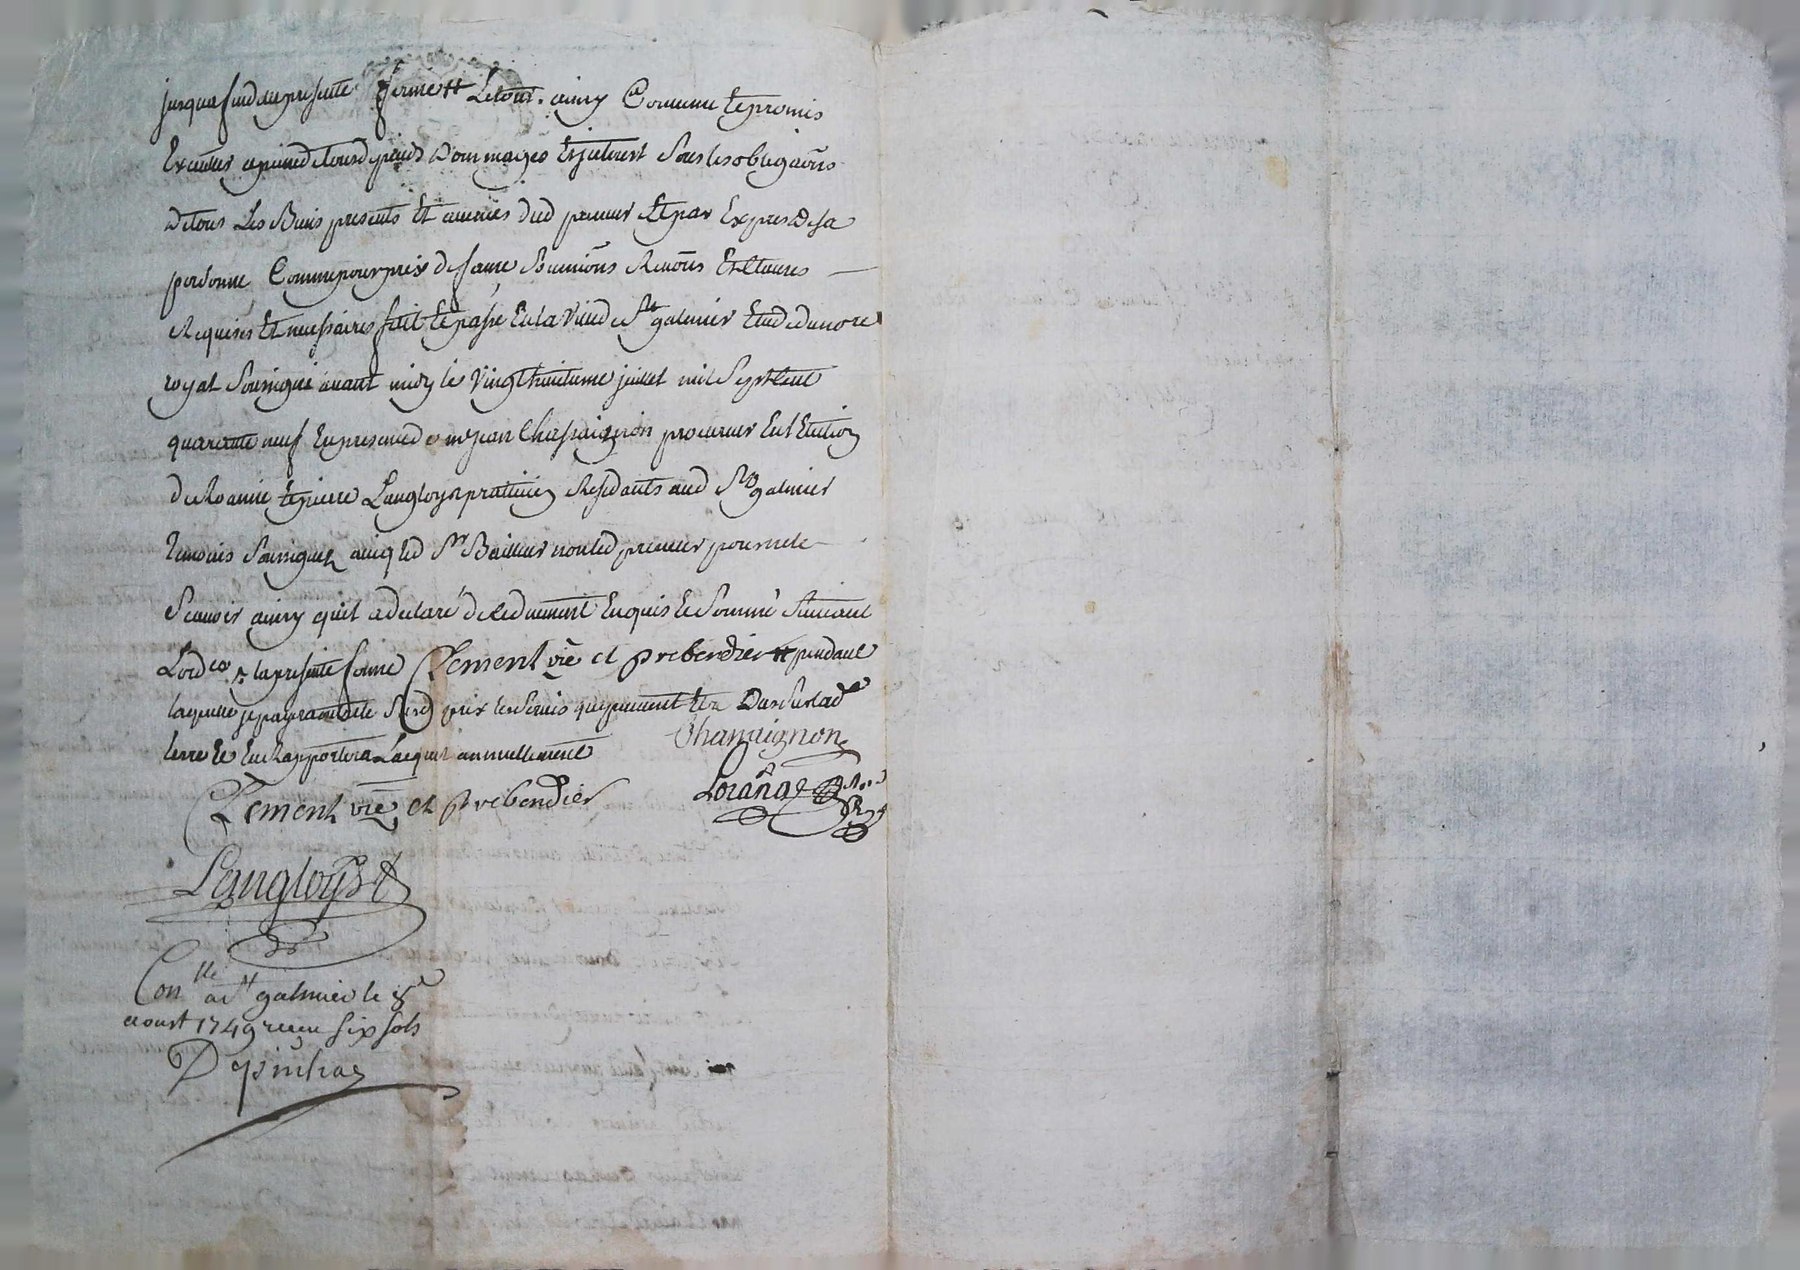 jusqua fin du presente ferme # Letout ainsy Convenu Et promis
Executer a peine de tous depends Dommages Et jnterest Sous les obligaōns
De tous Les Biens presents Et avenirs dud preneur Et par Expres De sa
personne Comme pour prix de ferme Soumiōns Renōns Et Clauses
Requises Et necessaires fait Et passé En la Ville de St galmier Etude du nore
royal Soussigné avant midy le Vingt huitieme juillet mil Sept Cent
quarante neuf En presence de me jean Chassaignon procureur En l'Election
de Roanne Et pierre Langloys praticien Residants aud St galmier
temoins Soussignez avec led Sr Bailleur non led preneur pour ne le
Scavoir ainsy qu'il a declaré de Ce duement Enquis Et Sommé Suivant
Lord ce # la presente ferme Clement vre et prebendier # pendant
laquelle je payeray Sur led prix les Servis qui peuvent Etre Dus Sur lad
terre Et En Rapportera Lacquit annuellement
Chassaignon
Clement vre et prebendier
Lorange
Langloys
Conlle a St galmier le 8e
aoust 1749 receu six sols